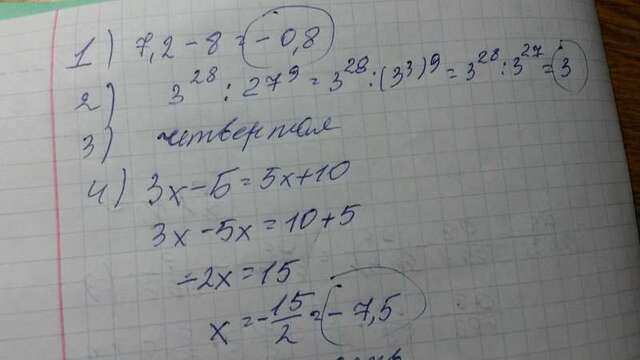 1) 7,2 - 8 = - 0,8
2) 3^28 : 27^9 = 3^28 : (3^3)^9 = 3^28 : 3^27 = 3
3) четвертая
4) 3x - 5 = 5x + 10
3x - 5x = 10 + 5
- 2x = 15
x = - 15/2 = - 7,5